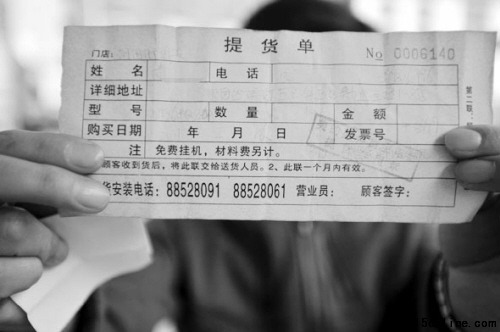 提货单
门店： No 0006140
姓名 电话
详细地址
型号 数量 金额
购买日期 年 月 日 发票号
注 免费挂机，材料费另计。
顾客收到货后，将此联交给送货人员。2、此联一个月内有效。
安装电话：88528091 88528061 营业员： 顾客签字：
第二联